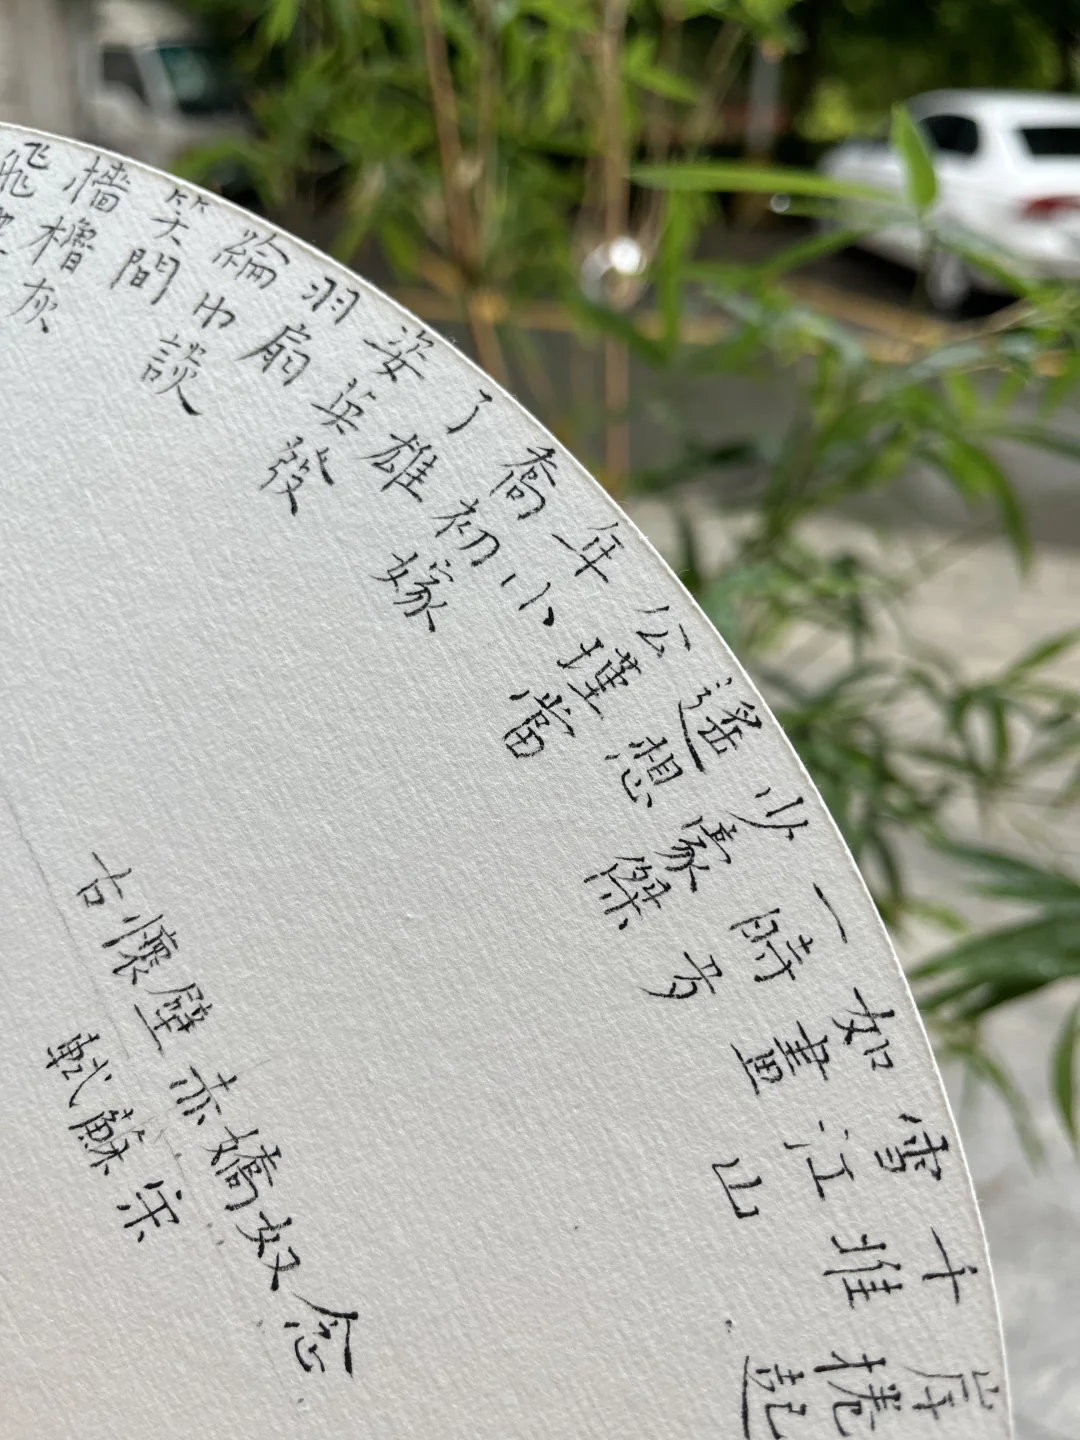 念奴嬌赤壁懷古
宋蘇軾
岸捲起
千堆
雪江山
如畫
一時多
少豪傑
遙想
公瑾當
年小
喬初嫁
了雄
姿英發
羽扇
綸巾談
笑間
檣櫓灰
飛